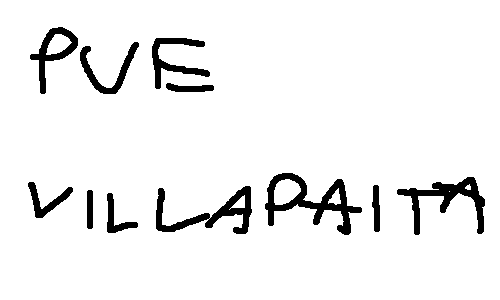 PUE
VILLAPAITA